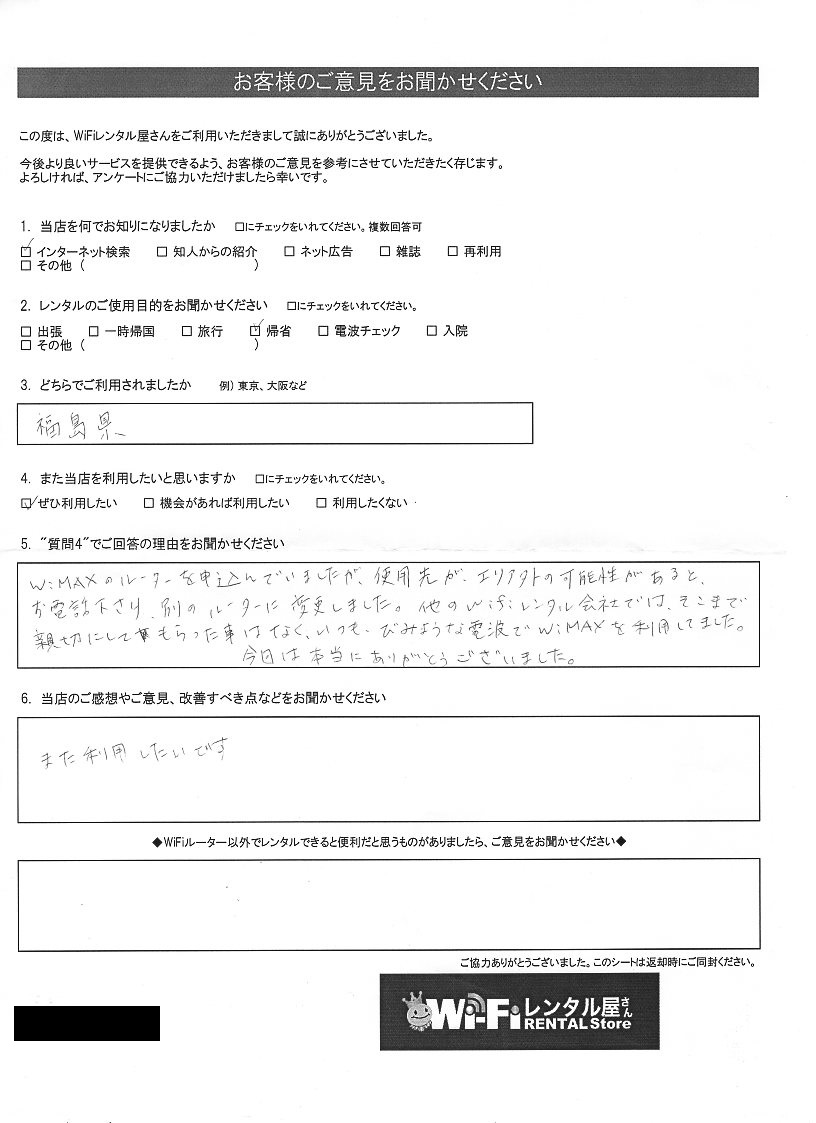 お客様のご意見をお聞かせください
この度は、WiFiレンタル屋さんをご利用いただきまして誠にありがとうございました。
今後より良いサービスを提供できるよう、お客様のご意見を参考にさせていただきたく存じます。
よろしければ、アンケートにご協力いただけましたら幸いです。
1. 当店を何でお知りになりましたか □にチェックをいれてください。複数回答可
☑ インターネット検索 □ 知人からの紹介 □ ネット広告 □ 雑誌 □ 再利用
□ その他 ( )
2. レンタルのご使用目的をお聞かせください □にチェックをいれてください。
□ 出張 □ 一時帰国 □ 旅行 ☑ 帰省 □ 電波チェック □ 入院
□ その他 ( )
3. どちらでご利用されましたか 例) 東京、大阪など
福島県
4. また当店を利用したいと思いますか □にチェックをいれてください。
☑ ぜひ利用したい □ 機会があれば利用したい □ 利用したくない
5. "質問4"でご回答の理由をお聞かせください
WiMAXのルーターを申込んでいましたが、使用先が、エリア外の可能性があると、
お電話下さり、別のルーターに変更しました。他のWifiレンタル会社では、そこまで
親切にしてもらった事はなく、いつも、びみような電波でWiMAXを利用してました。
今回は本当にありがとうございました。
6. 当店のご感想やご意見、改善すべき点などをお聞かせください
また利用したいです
◆WiFiルーター以外でレンタルできると便利だと思うものがありましたら、ご意見をお聞かせください◆
ご協力ありがとうございました。このシートは返却時にご同封ください。
Wi-Fiレンタル屋さん
RENTAL Store